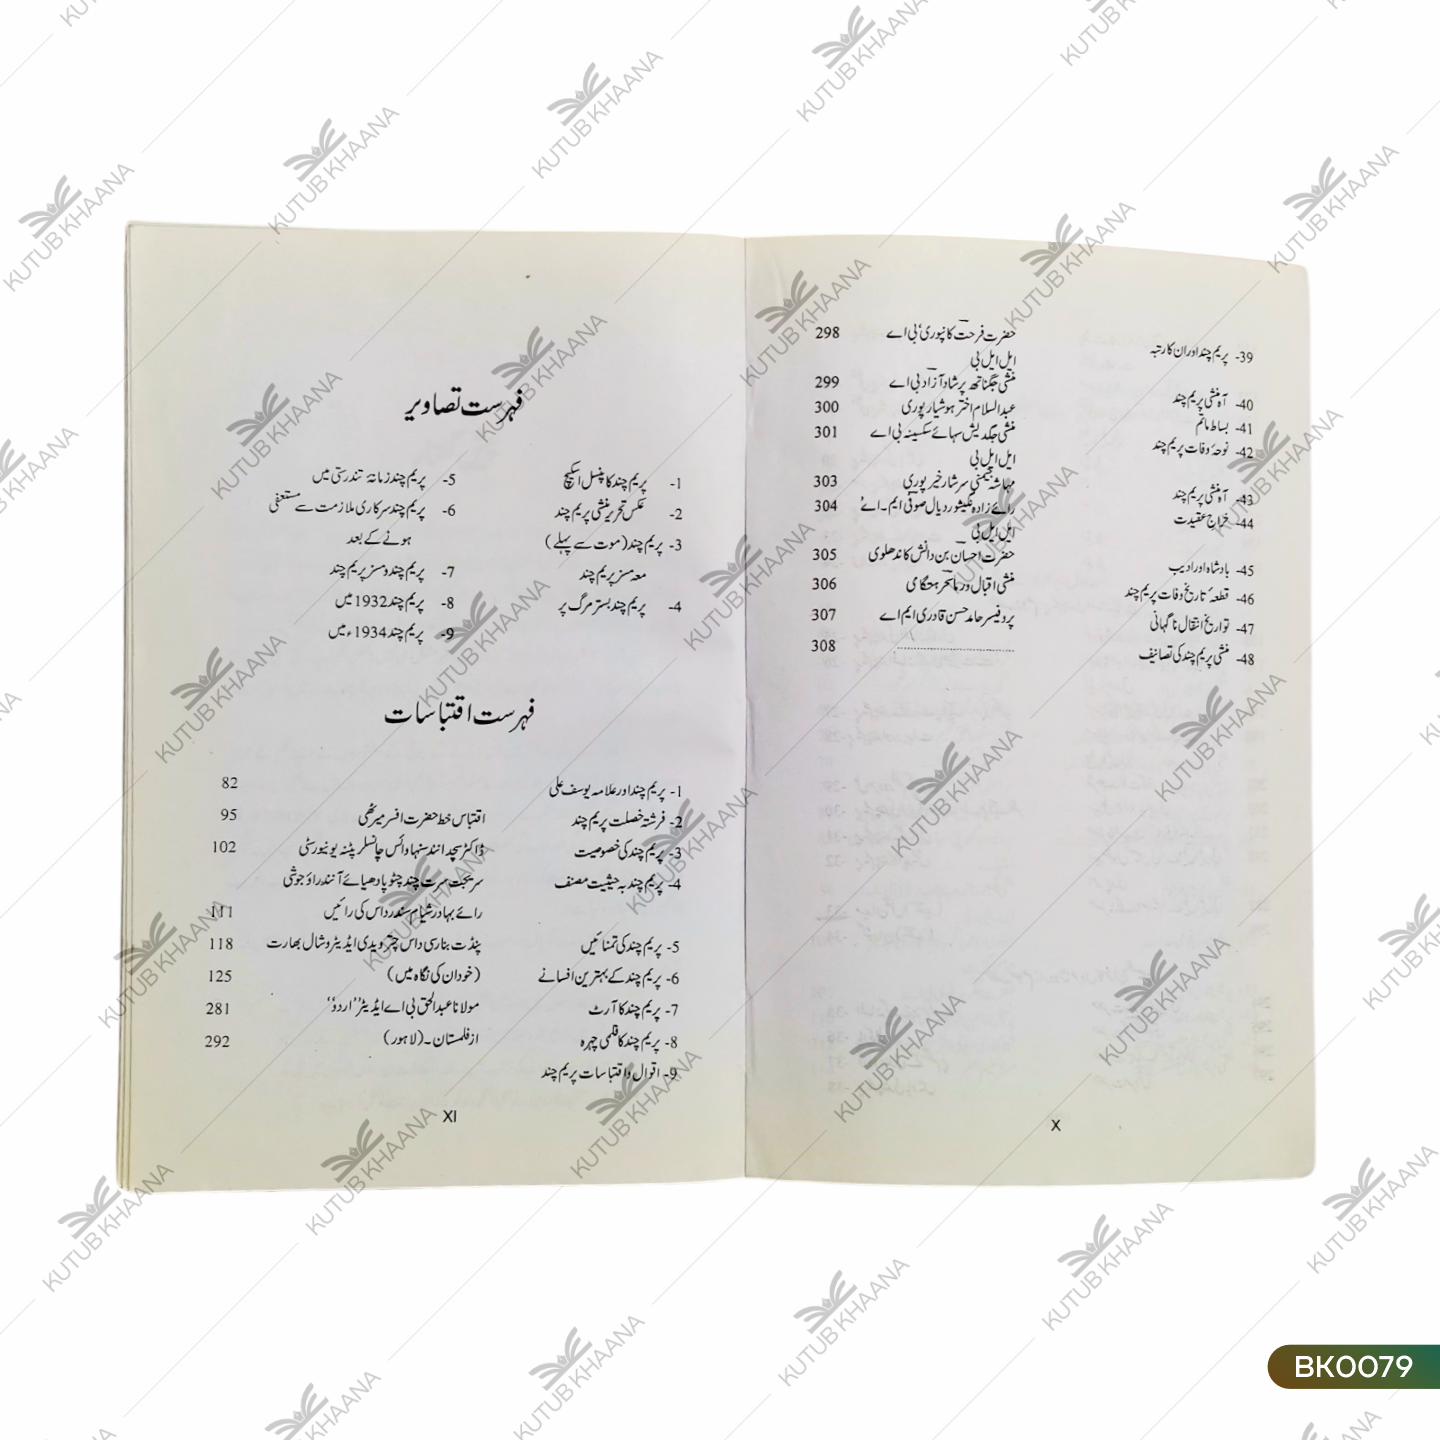 39- پریم چند اور ان کا رتبہ حضرت فرحت کانپوری بی اے 298
ایل ایل بی
40- آہ منشی پریم چند منشی جگناتھ پرشاد آزاد بی اے 299
41- بساط ماتم عبدالسلام اختر ہوشیارپوری 300
42- نوحۂ وفات پریم چند منشی جگدیش سہائے سکسینہ بی اے 301
ایل ایل بی
43- آہ منشی پریم چند مہاشہ جیمنی سرشار خیرپوری 303
44- خراج عقیدت رائے زادہ نگیشور دیال صوفی ایم۔اے 304
ایل ایل بی
45- بادشاہ اور ادیب حضرت احسان بن دانش کاندھلوی 305
46- قطعۂ تاریخ وفات پریم چند منشی اقبال ورما سحر ہتگامی 306
47- تواریخ انتقال ناگہانی پروفیسر حامد حسن قادری ایم اے 307
48- منشی پریم چند کی تصانیف 308
X
فہرست تصاویر
1- پریم چند کا پنسل اسکیچ
2- عکس تحریر منشی پریم چند
3- پریم چند (موت سے پہلے)
معہ مسز پریم چند
4- پریم چند بستر مرگ پر
5- پریم چند زمانۂ تندرستی میں
6- پریم چند سرکاری ملازمت سے مستعفی
ہونے کے بعد
7- پریم چند و مسز پریم چند
8- پریم چند 1932 میں
9- پریم چند 1934ء میں
فہرست اقتباسات
1- پریم چند اور علامہ یوسف علی 82
2- فرشتہ خصلت پریم چند اقتباس خط حضرت افسر میرٹھی 95
3- پریم چند کی خصوصیت ڈاکٹر سچدانند سنہا وائس چانسلر پٹنہ یونیورسٹی 102
4- پریم چند بہ حیثیت مصنف سریجت سرت چند چٹوپادھیائے آنند راؤ جوشی
رائے بہادر شیام سندر داس کی رائیں 111
5- پریم چند کی تمنائیں پنڈت بنارسی داس چترویدی ایڈیٹر وشال بھارت 118
6- پریم چند کے بہترین افسانے (خود ان کی نگاہ میں) 125
7- پریم چند کا آرٹ مولانا عبدالحق بی اے ایڈیٹر "اردو" 281
8- پریم چند کا قلمی چہرہ از فلمستان۔(لاہور) 292
9- اقوال و اقتباسات پریم چند
XI
KUTUB KHAANA
BK0079